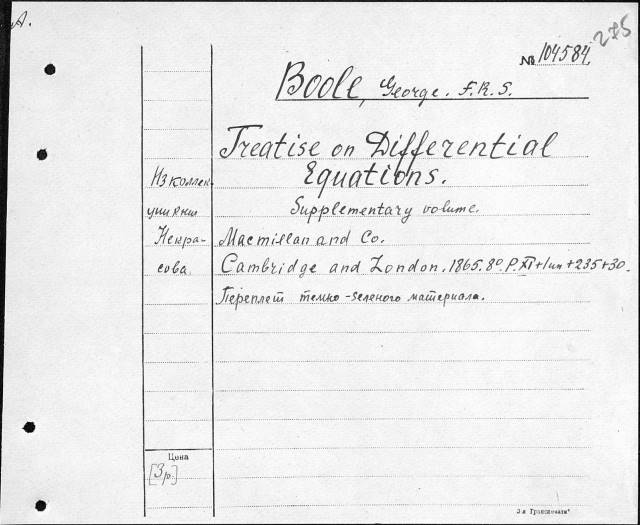 А.
275
№ 104584.
Boole, George. F.R.S.
Treatise on Differential
Equations.
Supplementary volume.
Macmillan and Co.
Cambridge and London. 1865. 8º. P. XI + 1 нн + 235 + 30.
Переплет темно-зеленого материала.
Из коллек-
ции
Некра-
сова
Цена
[3 р.]